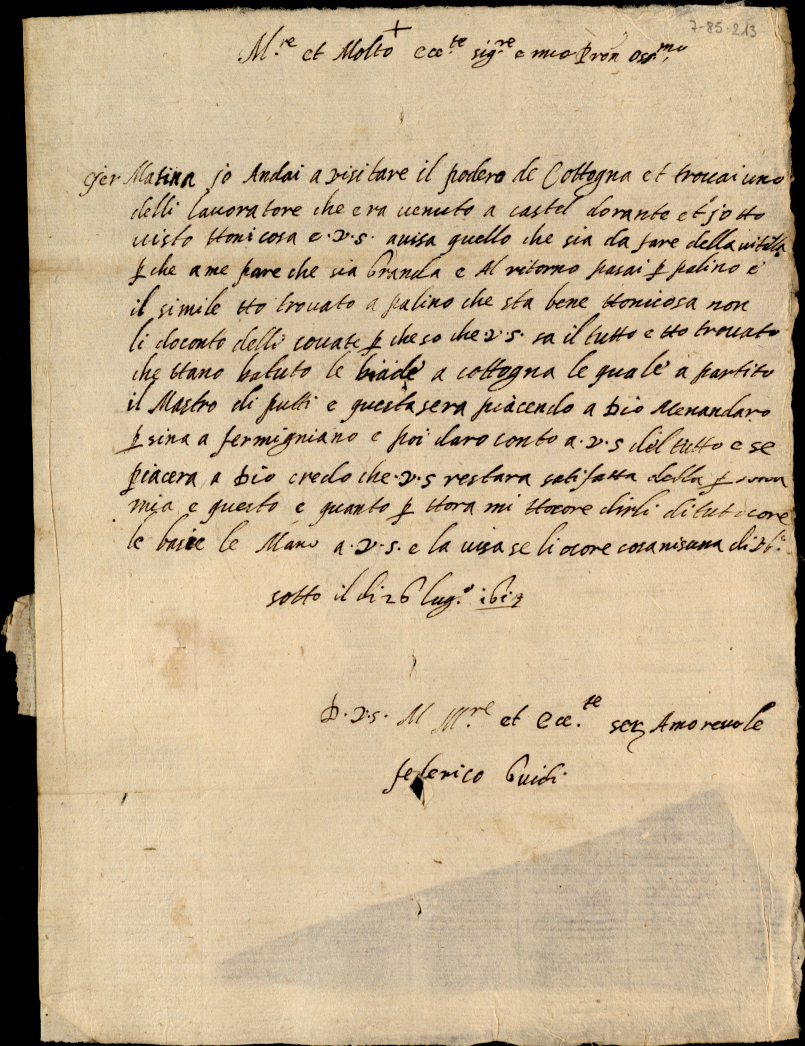 7-85-213
+
M.re et Molto ecc.te sig.re e mio pron oss.mo
jer Matina jo Andai a visitare il podere de Cottogna et trovai uno
delli lavoratore che era venuto a castel dorante et jo tto
visto ttonicosa e .v.s. avisa quello che sia da fare della vitella
p che a me pare che sia Granda e Al ritorno pasai p palino e
il simile tto trovato a palino che sta bene ttonicosa non
li do conto delli covate p che so che v.s. sa il tutto e tto trovato
che ttano batuto le biade a cottogna le quale a partito
il Mastro di putti e questa sera piacendo a Dio Me nandaro
p sina a fermigniano e poi daro conto a .v.s del tutto e se
piacera a Dio credo che .v.s restara satifatta della
mia e questo e quanto p ttora mi ttocore dirli di tuto core
le bascie le Mano a .v.s. e la visa se li ocore cosa nisuna di
sotto il di 26 lug.o 161
D.v.s. M M.re et Ecc.te ser Amorevole
federico Guidi